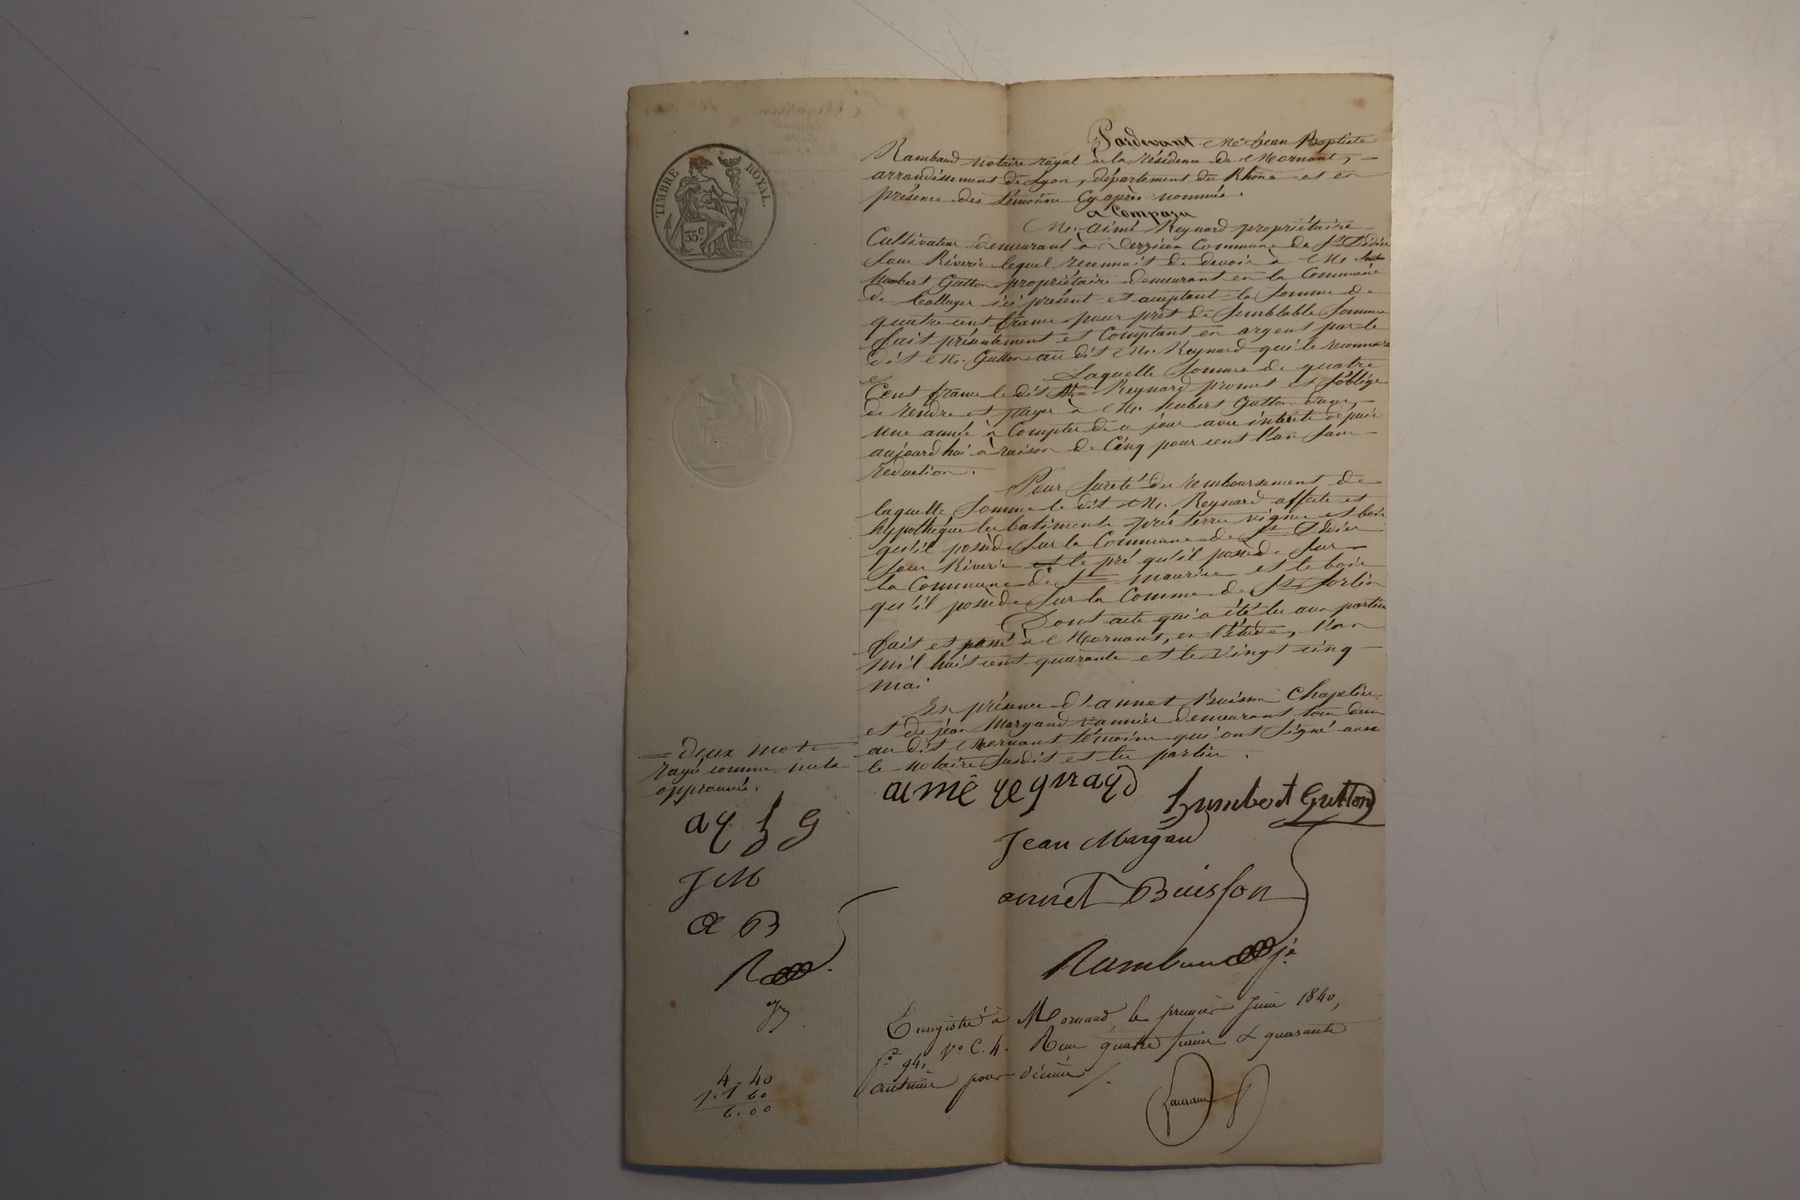 TIMBRE ROYAL.
35c
Pardevant Me Jean Baptiste
Rambaud notaire royal à la résidence de Mornant,
arrondissement de Lyon, département du Rhône et en
présence des témoins cy après nommés.
a Comparu
Mr. Aimé Reynard propriétaire
Cultivateur demeurant à Commune de St Didier
sous Riverie lequel reconnait de devoir à Mr.
Humbert Gutton propriétaire demeurant en la Commune
de Colluger ici présent et acceptant la somme de
quatre cent francs pour prêt de semblable somme
fait présentement et comptant en argent par le
dit Mr. Gutton au dit Mr. Reynard qui le reconnait
Laquelle somme de quatre
Cent francs le dit Mr Reynard promet et s'oblige
de rendre et payer à Mr. Humbert Gutton dans
une année à Compter de ce jour avec intérêts depuis
aujourd'hui à raison de Cinq pour cent l'an sans
réduction.
Pour sureté du remboursement de
laquelle somme le dit Mr. Reynard affecte et
hypothèque les batiments prés terres vignes et bois
qu'il possède sur la Commune de St Didier
sous Riverie et le pré qu'il possède sur
la Commune de St Maurice et le bois
qu'il possède sur la Comme de St Sorlin
Dont acte qui a été lu aux parties
fait et passé à Mornant, en l'étude, l'an
mil huit cent quarante et le vingt cinq
mai
En présence d'annet Buisson Chapelier
et de jean Margaud vannier demeurant tous deux
au dit Mornant témoins qui ont signé avec
le notaire susdit et les parties.
= deux mots
rayés comme nuls
approuvés.
aimé reynayd
humbert Gutton
ay h G
Jean Margau
JM
annet Buisson
a B
Rambaud
R
Enregistré à Mornand le premier Juin 1840,
fo 94, Vo C. 4. Reçu quatre francs & quarante
centimes pour décime
4. 40
1. 60
6. 00